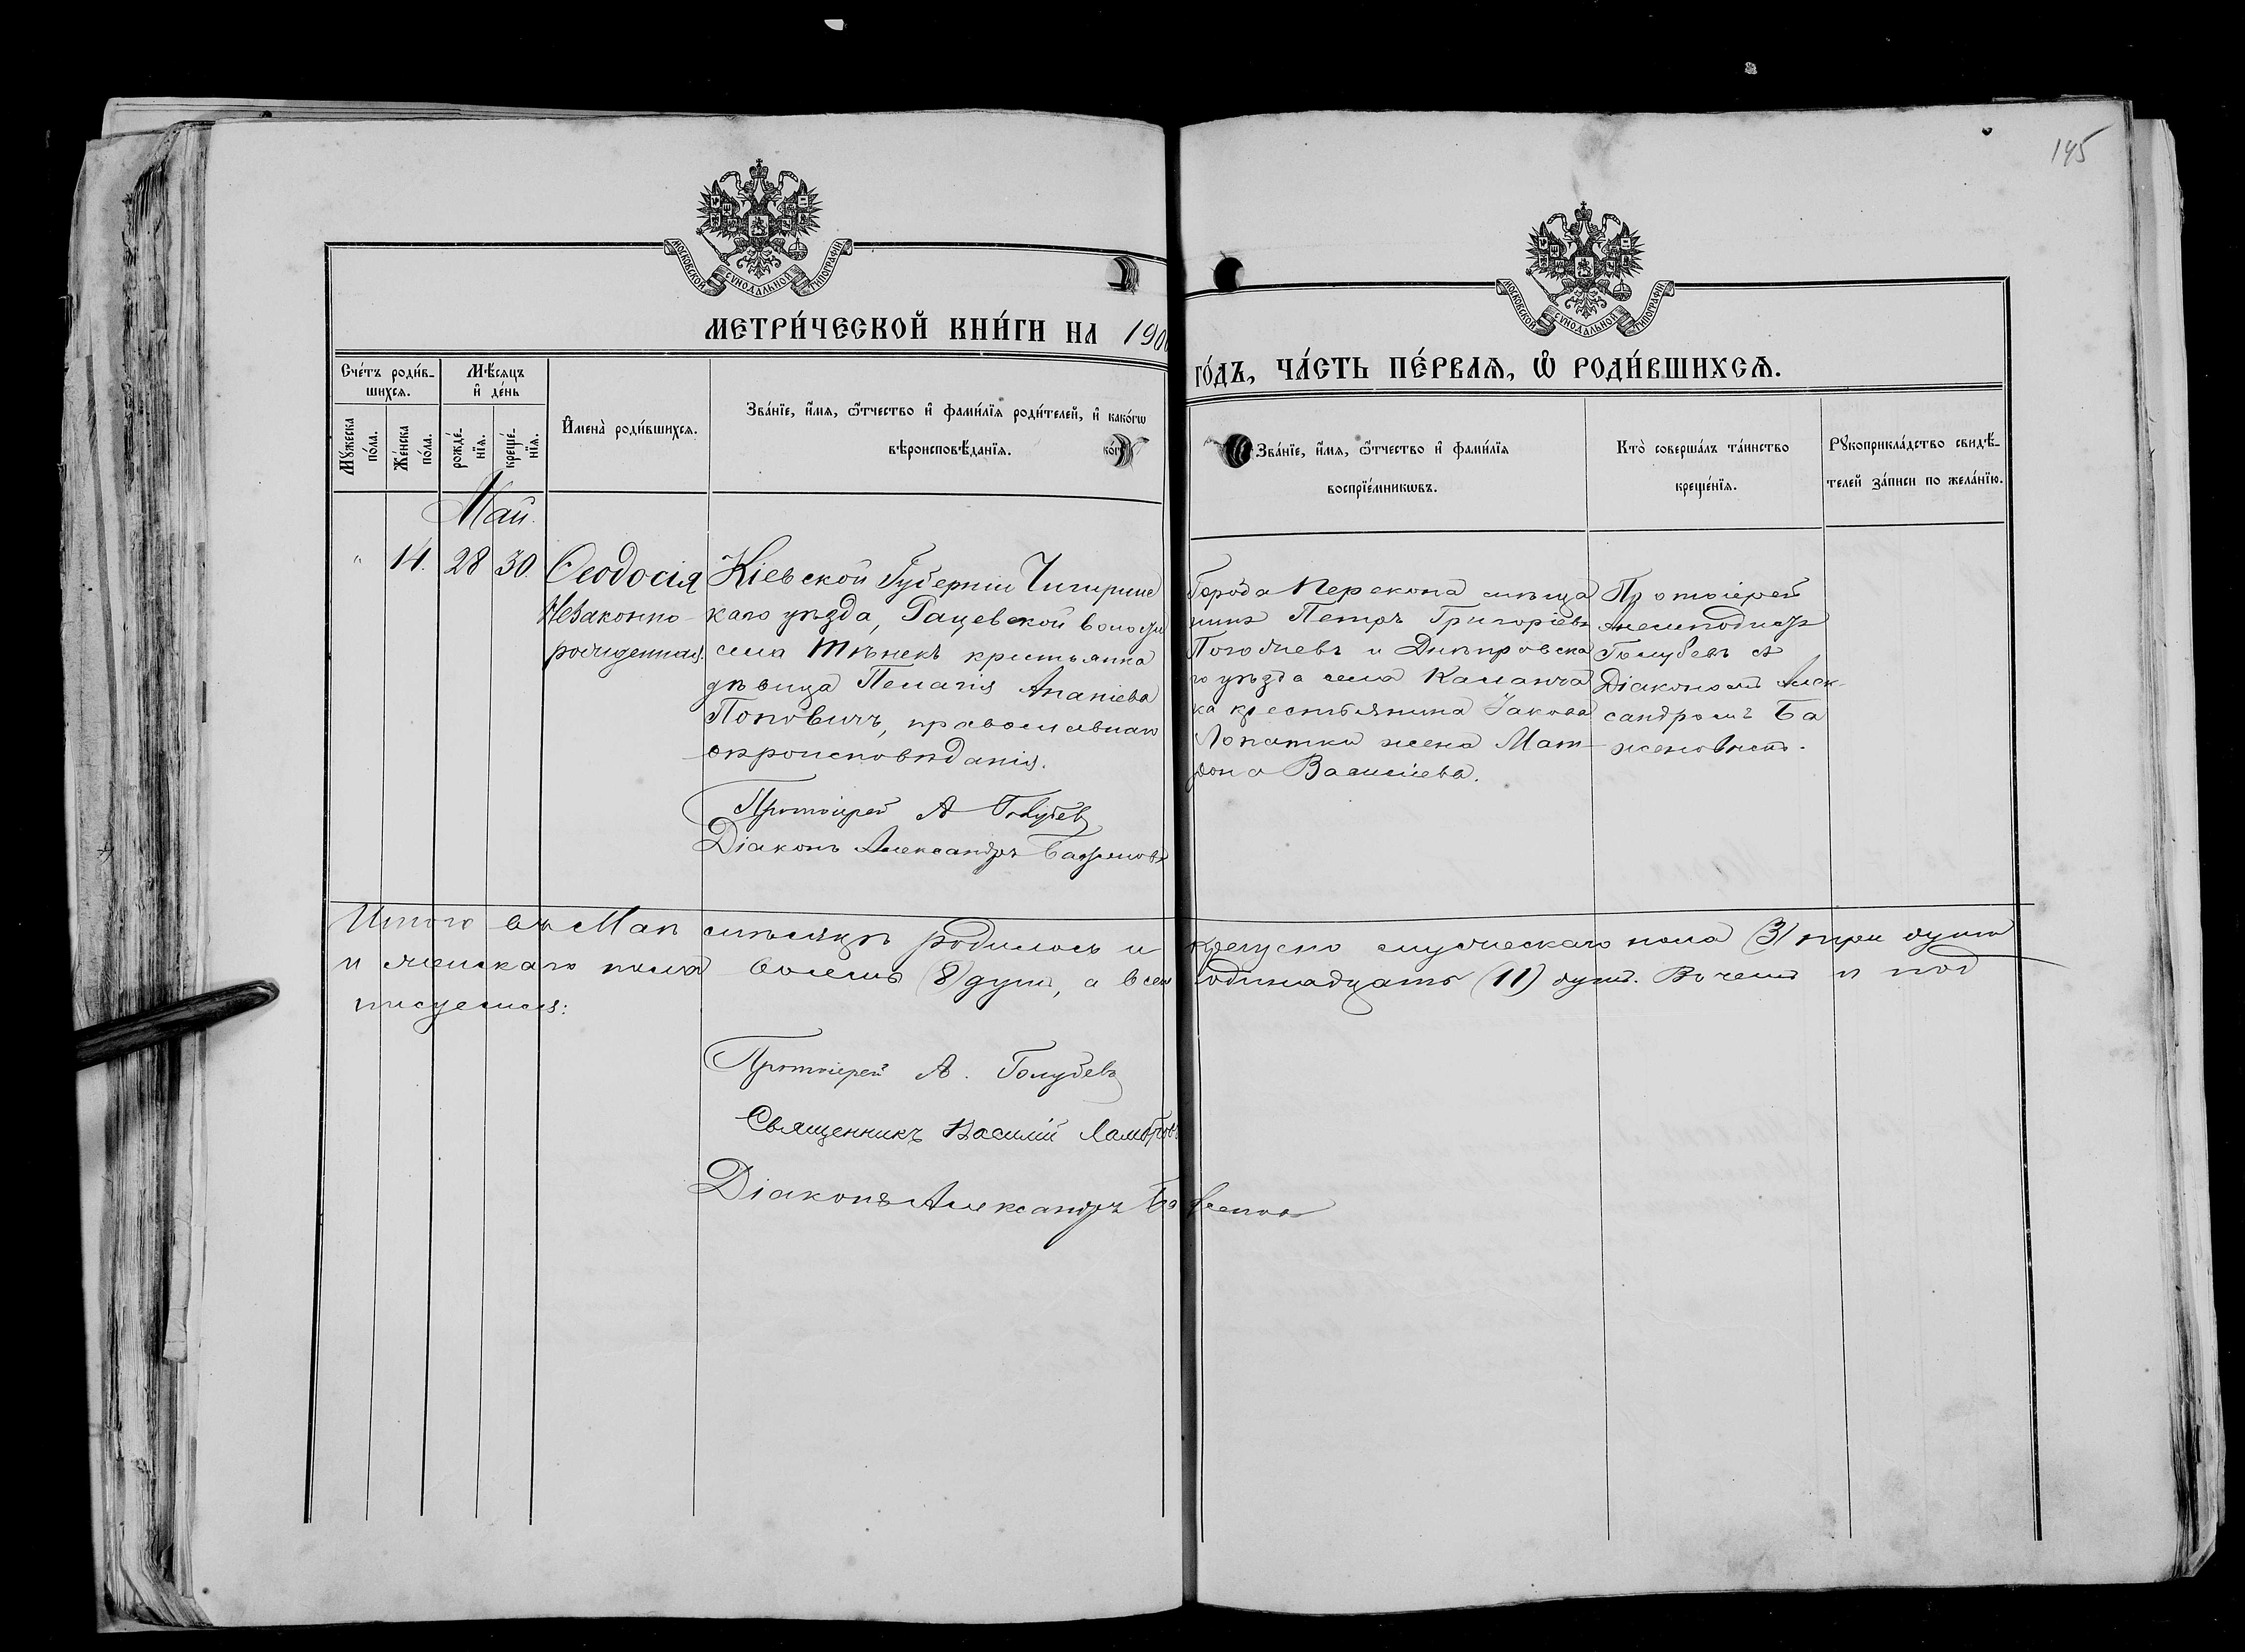 145
МОСКОВСКОЙ СУНОДАЛЬНОЙ ТИПОГРАФІИ
МОСКОВСКОЙ СУНОДАЛЬНОЙ ТИПОГРАФІИ
МЕТРИ́ЧЕСКОЙ КНИ́ГИ НА 1900
ГО́ДЪ, ЧА́СТЬ ПЕ́РВАѦ, Ѡ РОДИ́ВШИХСѦ.
Сче́тъ роди́в-
шихсѧ.
Мѣсѧцъ
и де́нь
Мꙋжеска
по́ла.
Же́нска
по́ла.
рожде́-
нїѧ.
креще́-
нїѧ.
Имена̀ роди́вшихсѧ.
Зва́нїе, и́мѧ, ѻ́тчество и фами́лїѧ роди́телей, и како́гѡ
вѣроисповѣ́данїѧ.
Зва́нїе, и́мѧ, ѻ́тчество и фами́лїѧ
воспрїе́мникѡвъ.
Кто̀ соверша́лъ та́инство
креще́нїѧ.
Рꙋкоприкла́дство свидѣ́-
телей за́писи по жела́нїю.
Май.
" 14. 28 30.
Ѳеодосія
Незаконно-
рожденная.
Кіевской Губерніи Чигринс
каго уѣзда, Рацевской волости
села Тѣнекъ крестьянка
дѣвица Пелагія Ананіева
Поповичъ, православнаго
вѣроисповѣданія.
Протоіерей А Голубевъ
Діаконъ Александръ Баженовъ
Города Перекопа мѣща
нинъ Петръ Григоріевъ
и Днѣпровска
го уѣзда села Каланча
ка крестьянина Іакова
Лопатки жена Мат-
рона Васильева.
Протоіерей
Анемподистъ
Голубевъ съ
Діакономъ Алек-
сандромъ Ба
женовымъ.
Итого въ Маѣ мѣсяцѣ родилось и крещено мужескаго пола (3) три души
и женскаго пола восемь (8) душъ, а всего одинадцать (11) душъ. Въ чемъ и под
писуемся:
Протоіерей А. Голубевъ
Священникъ Василій
Діаконъ Александръ Баженовъ